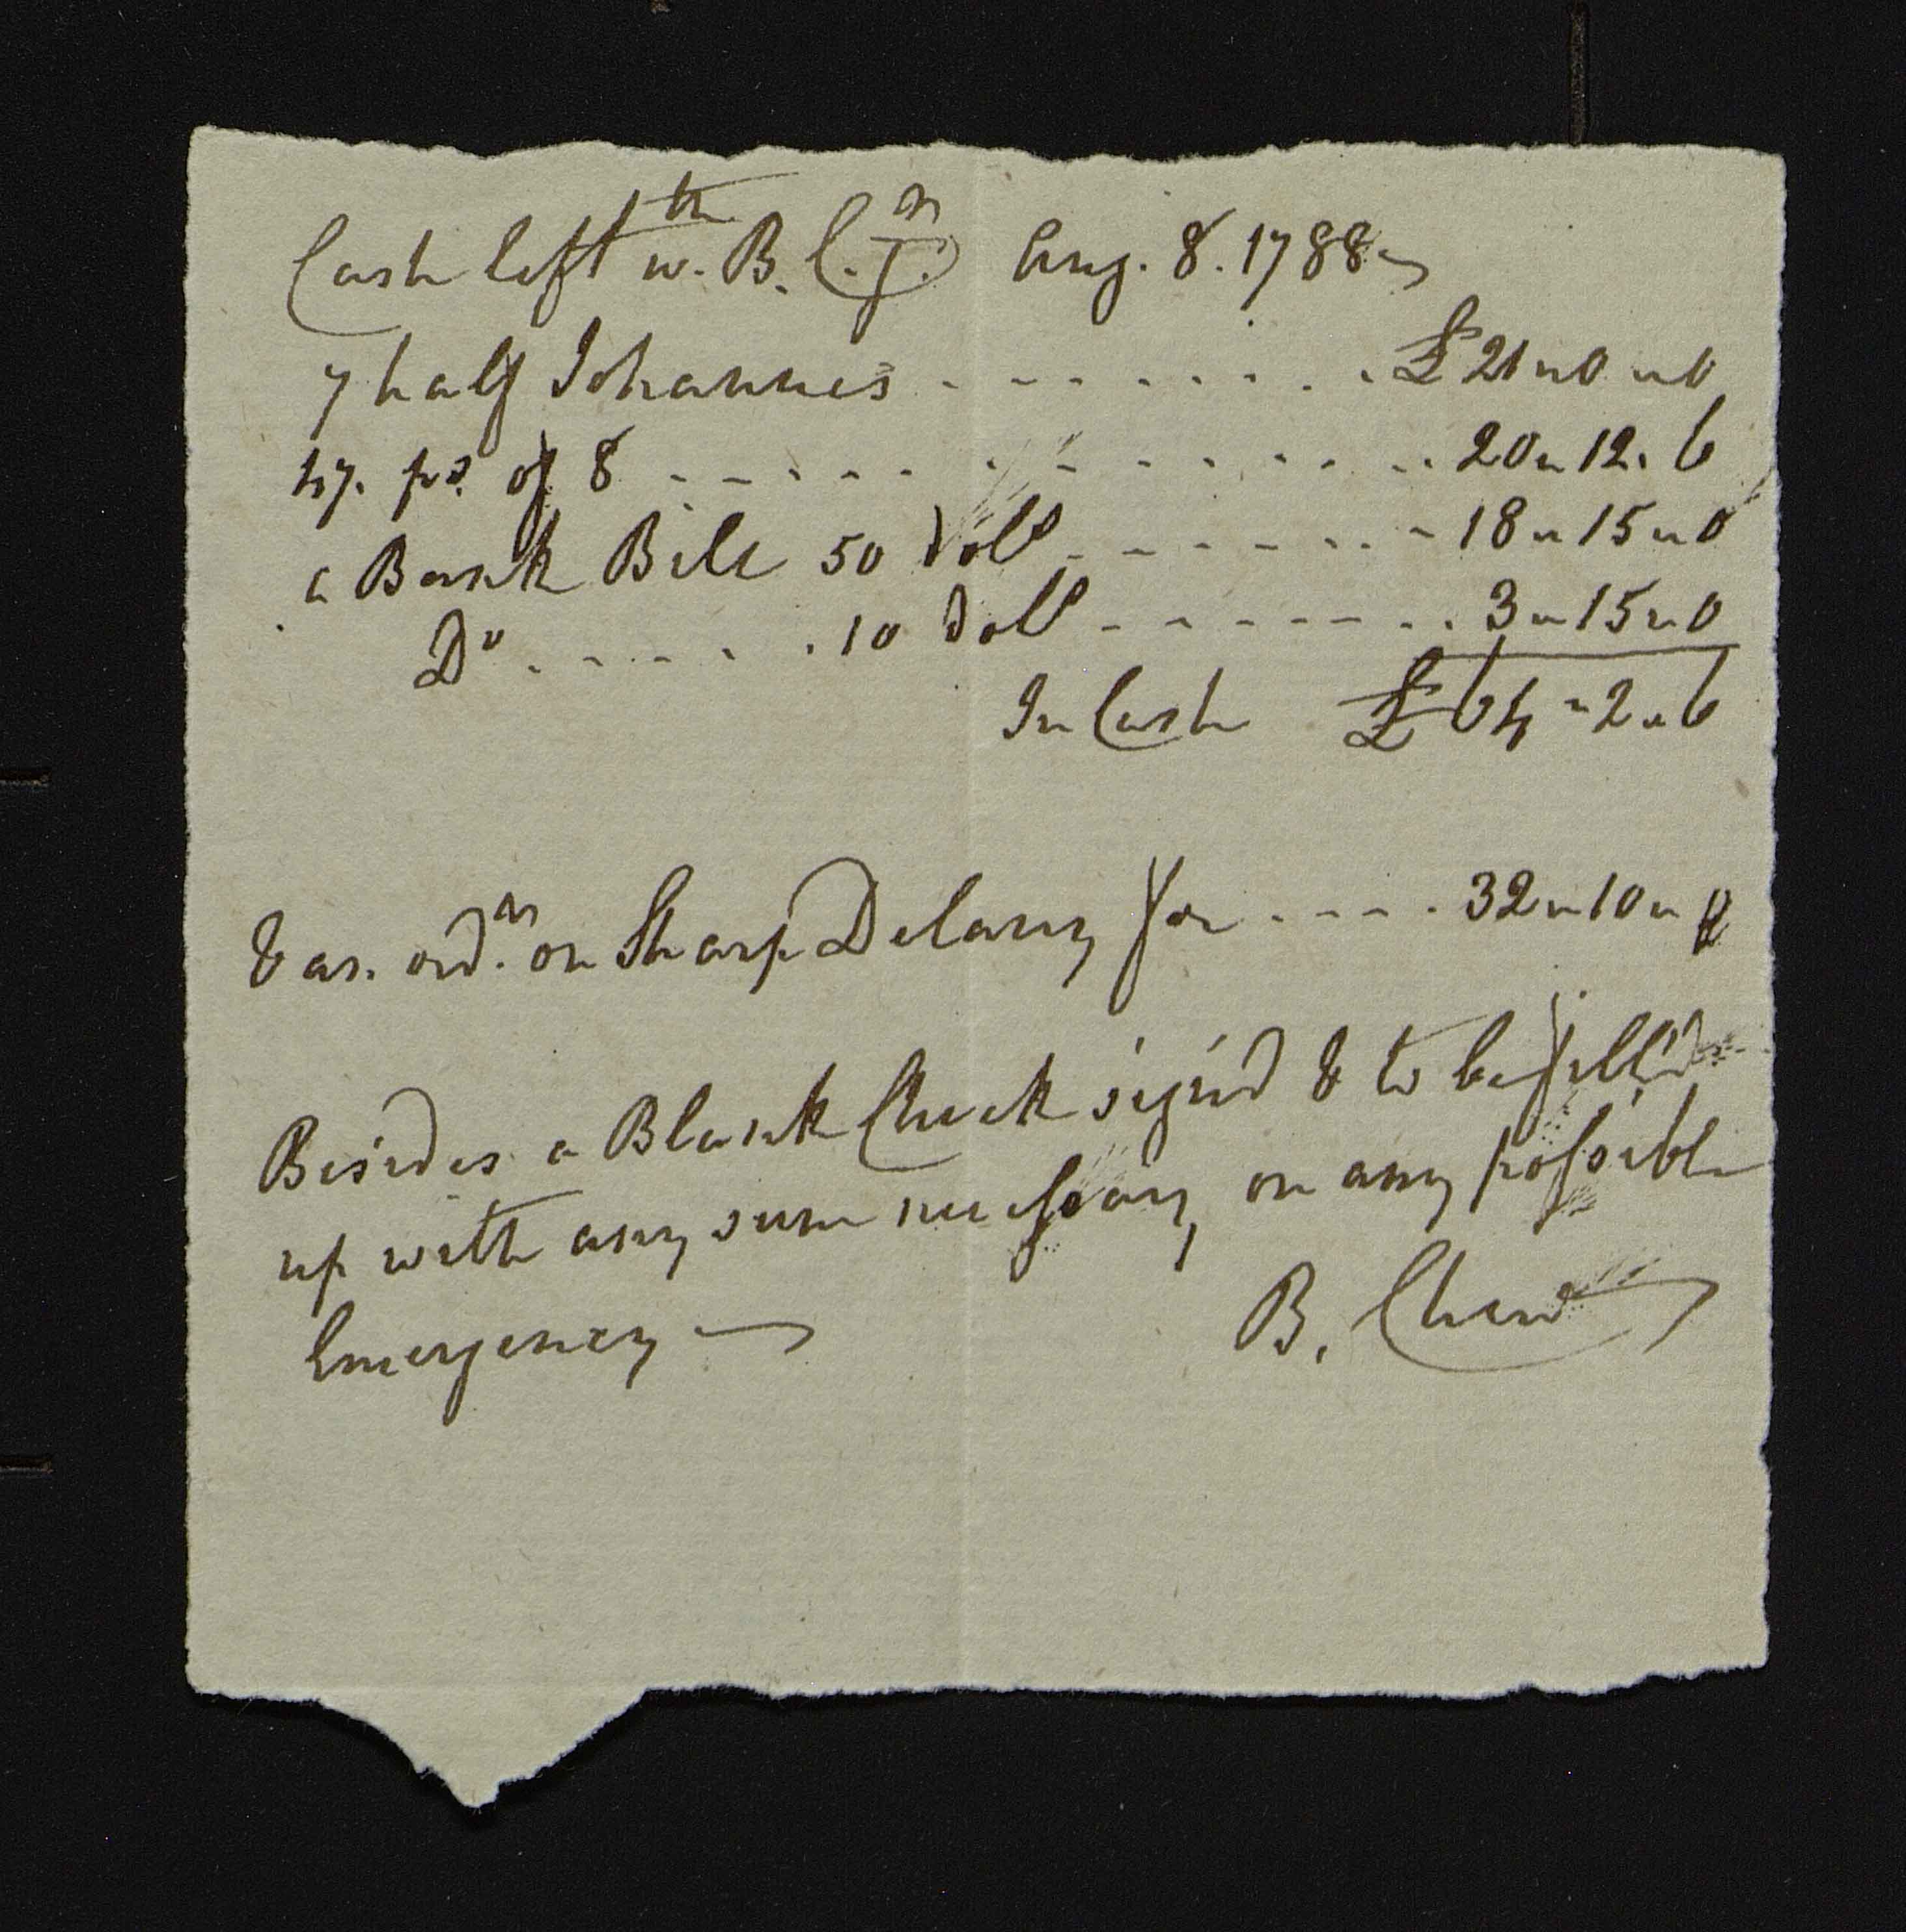 Cash left wth. B. C. Jr. Aug. 8. 1788
7 half Johannes - - - - - - - - £ 21 " 0 " 0
47. ps. of 8 - - - - - - - - - - - 20 " 12. 6
a Bank Bill 50 Dolls - - - - - - - 18 " 15 " 0
Do - - - - - . 10 Dolls - - - - - - - - 3 " 15 " 0
In Cash £ 64 " 2 " 6
& an. ordr. on Sharp Delany for - - - - . 32 " 10 "
Besides a Blank Check sign'd & to be fill'd
up with any sum necessary, on any possible
Emergency —
B. Chew